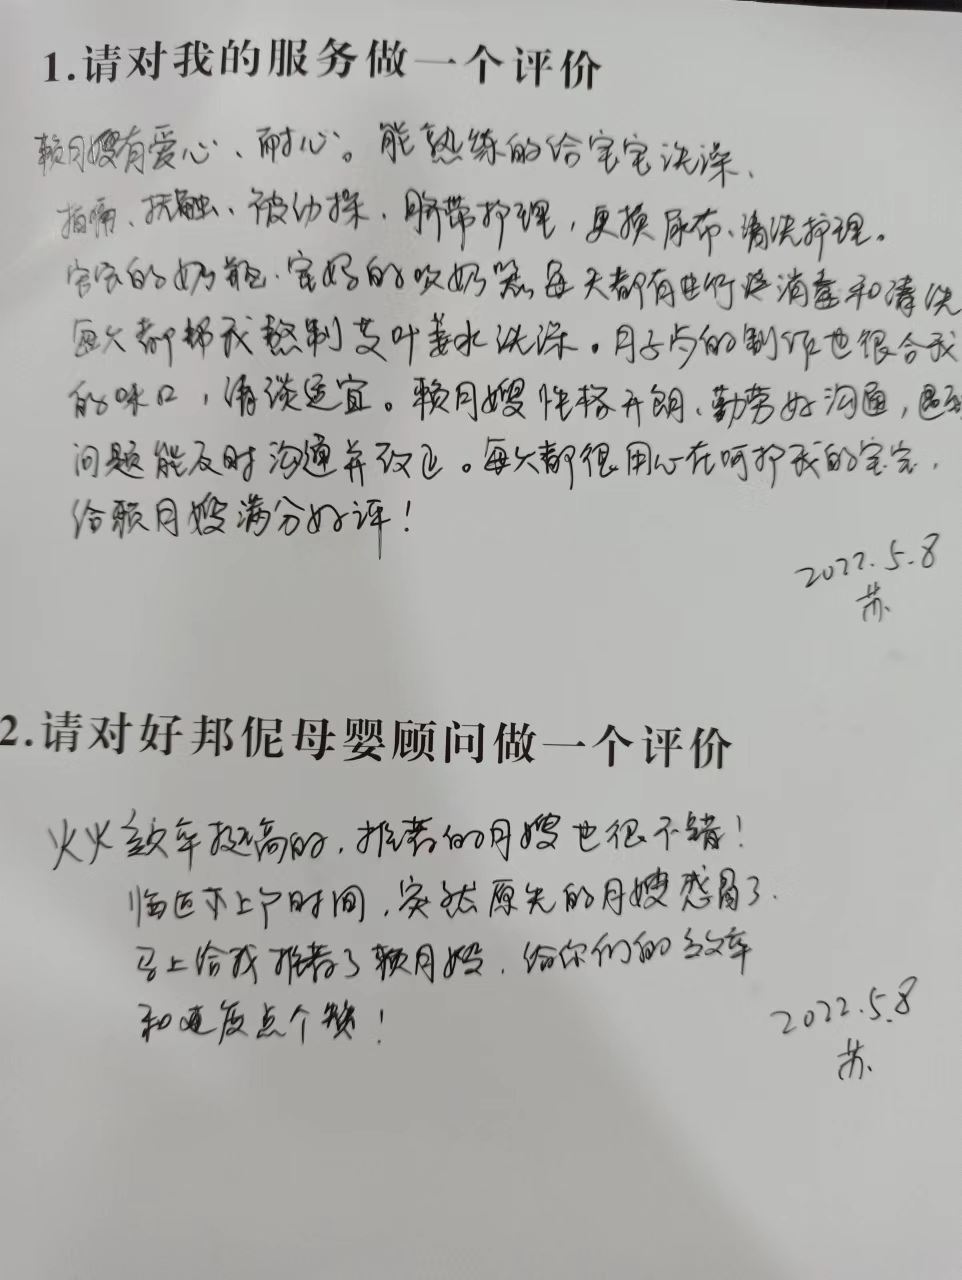 1.请对我的服务做一个评价
赖月嫂有爱心、耐心。能熟练的给宝宝洗澡、
拍嗝、抚触、被动操、脐带护理，更换尿布、清洗护理。
宝宝的奶瓶、宝妈的吸奶器每天都有进行消毒和清洗
每天都帮我熬制艾叶姜水洗澡。月子的制作也很合我
的味口，清淡适宜。赖月嫂性格开朗、勤劳好沟通，遇到
问题能及时沟通并改正。每天都很用心在呵护我的宝宝，
给赖月嫂满分好评！
2022.5.8
苏
2.请对好邦伲母婴顾问做一个评价
火火效率挺高的，推荐的月嫂也很不错！
临近上户时间，突然原先的月嫂感冒了.
马上给我推荐了赖月嫂，给你们的效率
和速度点个赞！
2022.5.8
苏